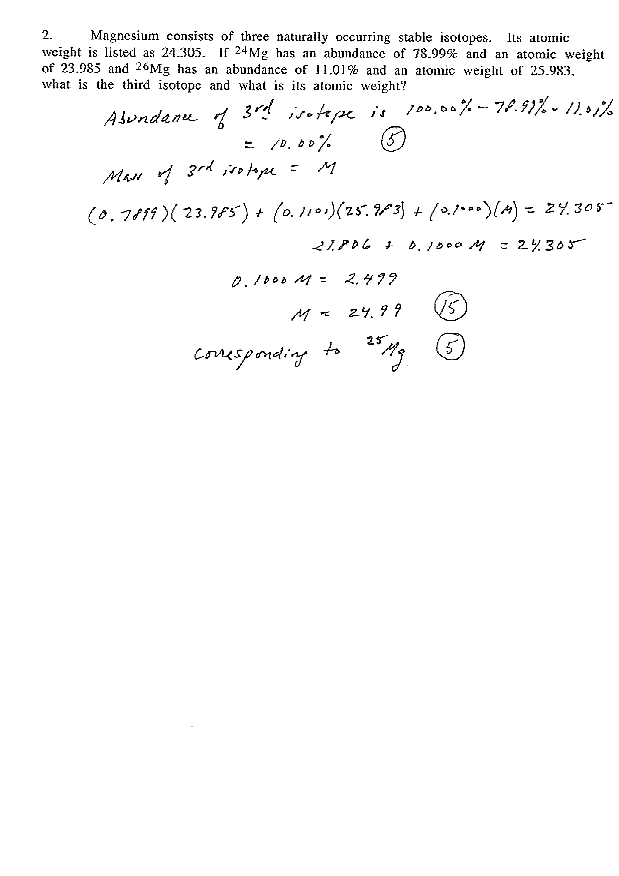 2. Magnesium consists of three naturally occurring stable isotopes. Its atomic
weight is listed as 24.305. If 24Mg has an abundance of 78.99% and an atomic weight
of 23.985 and 26Mg has an abundance of 11.01% and an atomic weight of 25.983,
what is the third isotope and what is its atomic weight?
Abundance of 3rd isotope is 100.00% - 78.99% - 11.01%
= 10.00% 5
Mass of 3rd isotope = M
(0.7899)(23.985) + (0.1101)(25.983) + (0.1000)(M) = 24.305
21.806 + 0.1000 M = 24.305
0.1000 M = 2.499
M = 24.99 15
corresponding to 25Mg 5